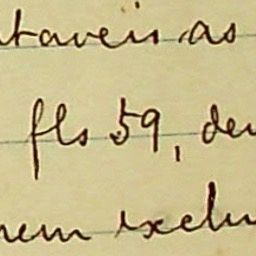 taveis as
fls 59, de
nem exclu